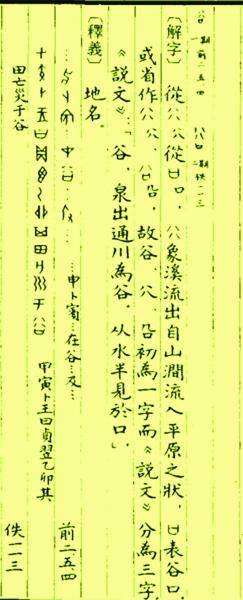 一期前二.五.四 二期佚一一三
〔解字〕從 從 口,象溪流出自山澗流入平原之狀,口表谷口,
或省作 故谷、 初為一字而《說文》分為三字
《說文》:「谷,泉出通川為谷。从水半見於口。」
〔釋義〕
地名。
…申卜賓…在谷…及… 前二.五.四
甲寅卜王曰貞翌乙卯其
田亡災于谷 佚一一三